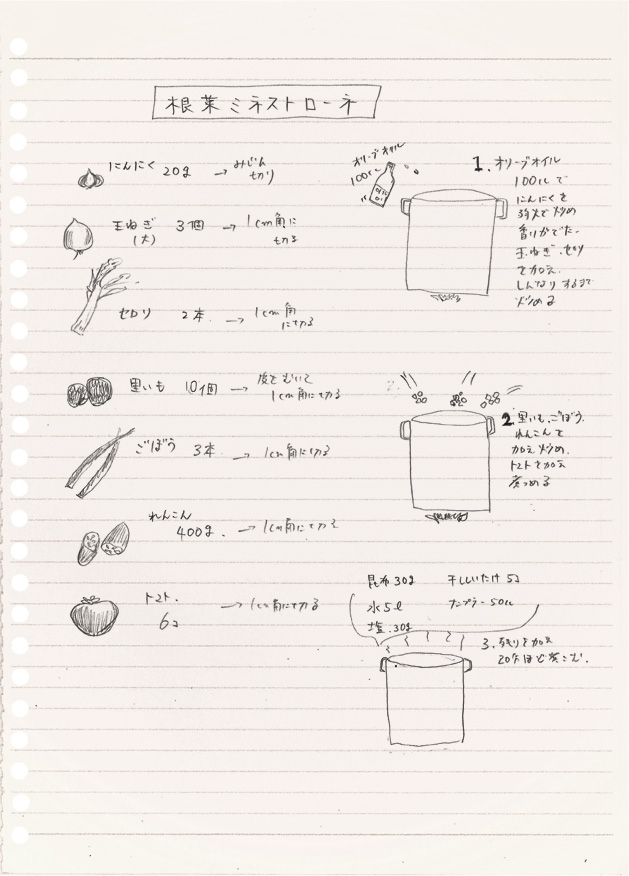 根菜ミネストローネ
にんにく 20g → みじん
切り
玉ねぎ 3個 → 1cm角に
(大) 切る
セロリ 2本 → 1cm角
に切る
里いも 10個 → 皮をむいて
1cm角に切る
ごぼう 3本 → 1cm角に切る
れんこん
400g → 1cm角に切る
トマト → 1cm角に切る
6コ
オリーブオイル
100cc
1. オリーブオイル
100ccで
にんにくを
弱火で炒め
香りがでたら
玉ねぎ、セロリ
を加え、
しんなりするまで
炒める
2. 里いも、ごぼう、
れんこんを
加え炒め、
トマトを加え
煮つめる
昆布30g 干しいたけ 5コ
水5ℓ ナンプラー50cc
塩 30g
3. 残りを加え
20分ほど煮こむ.